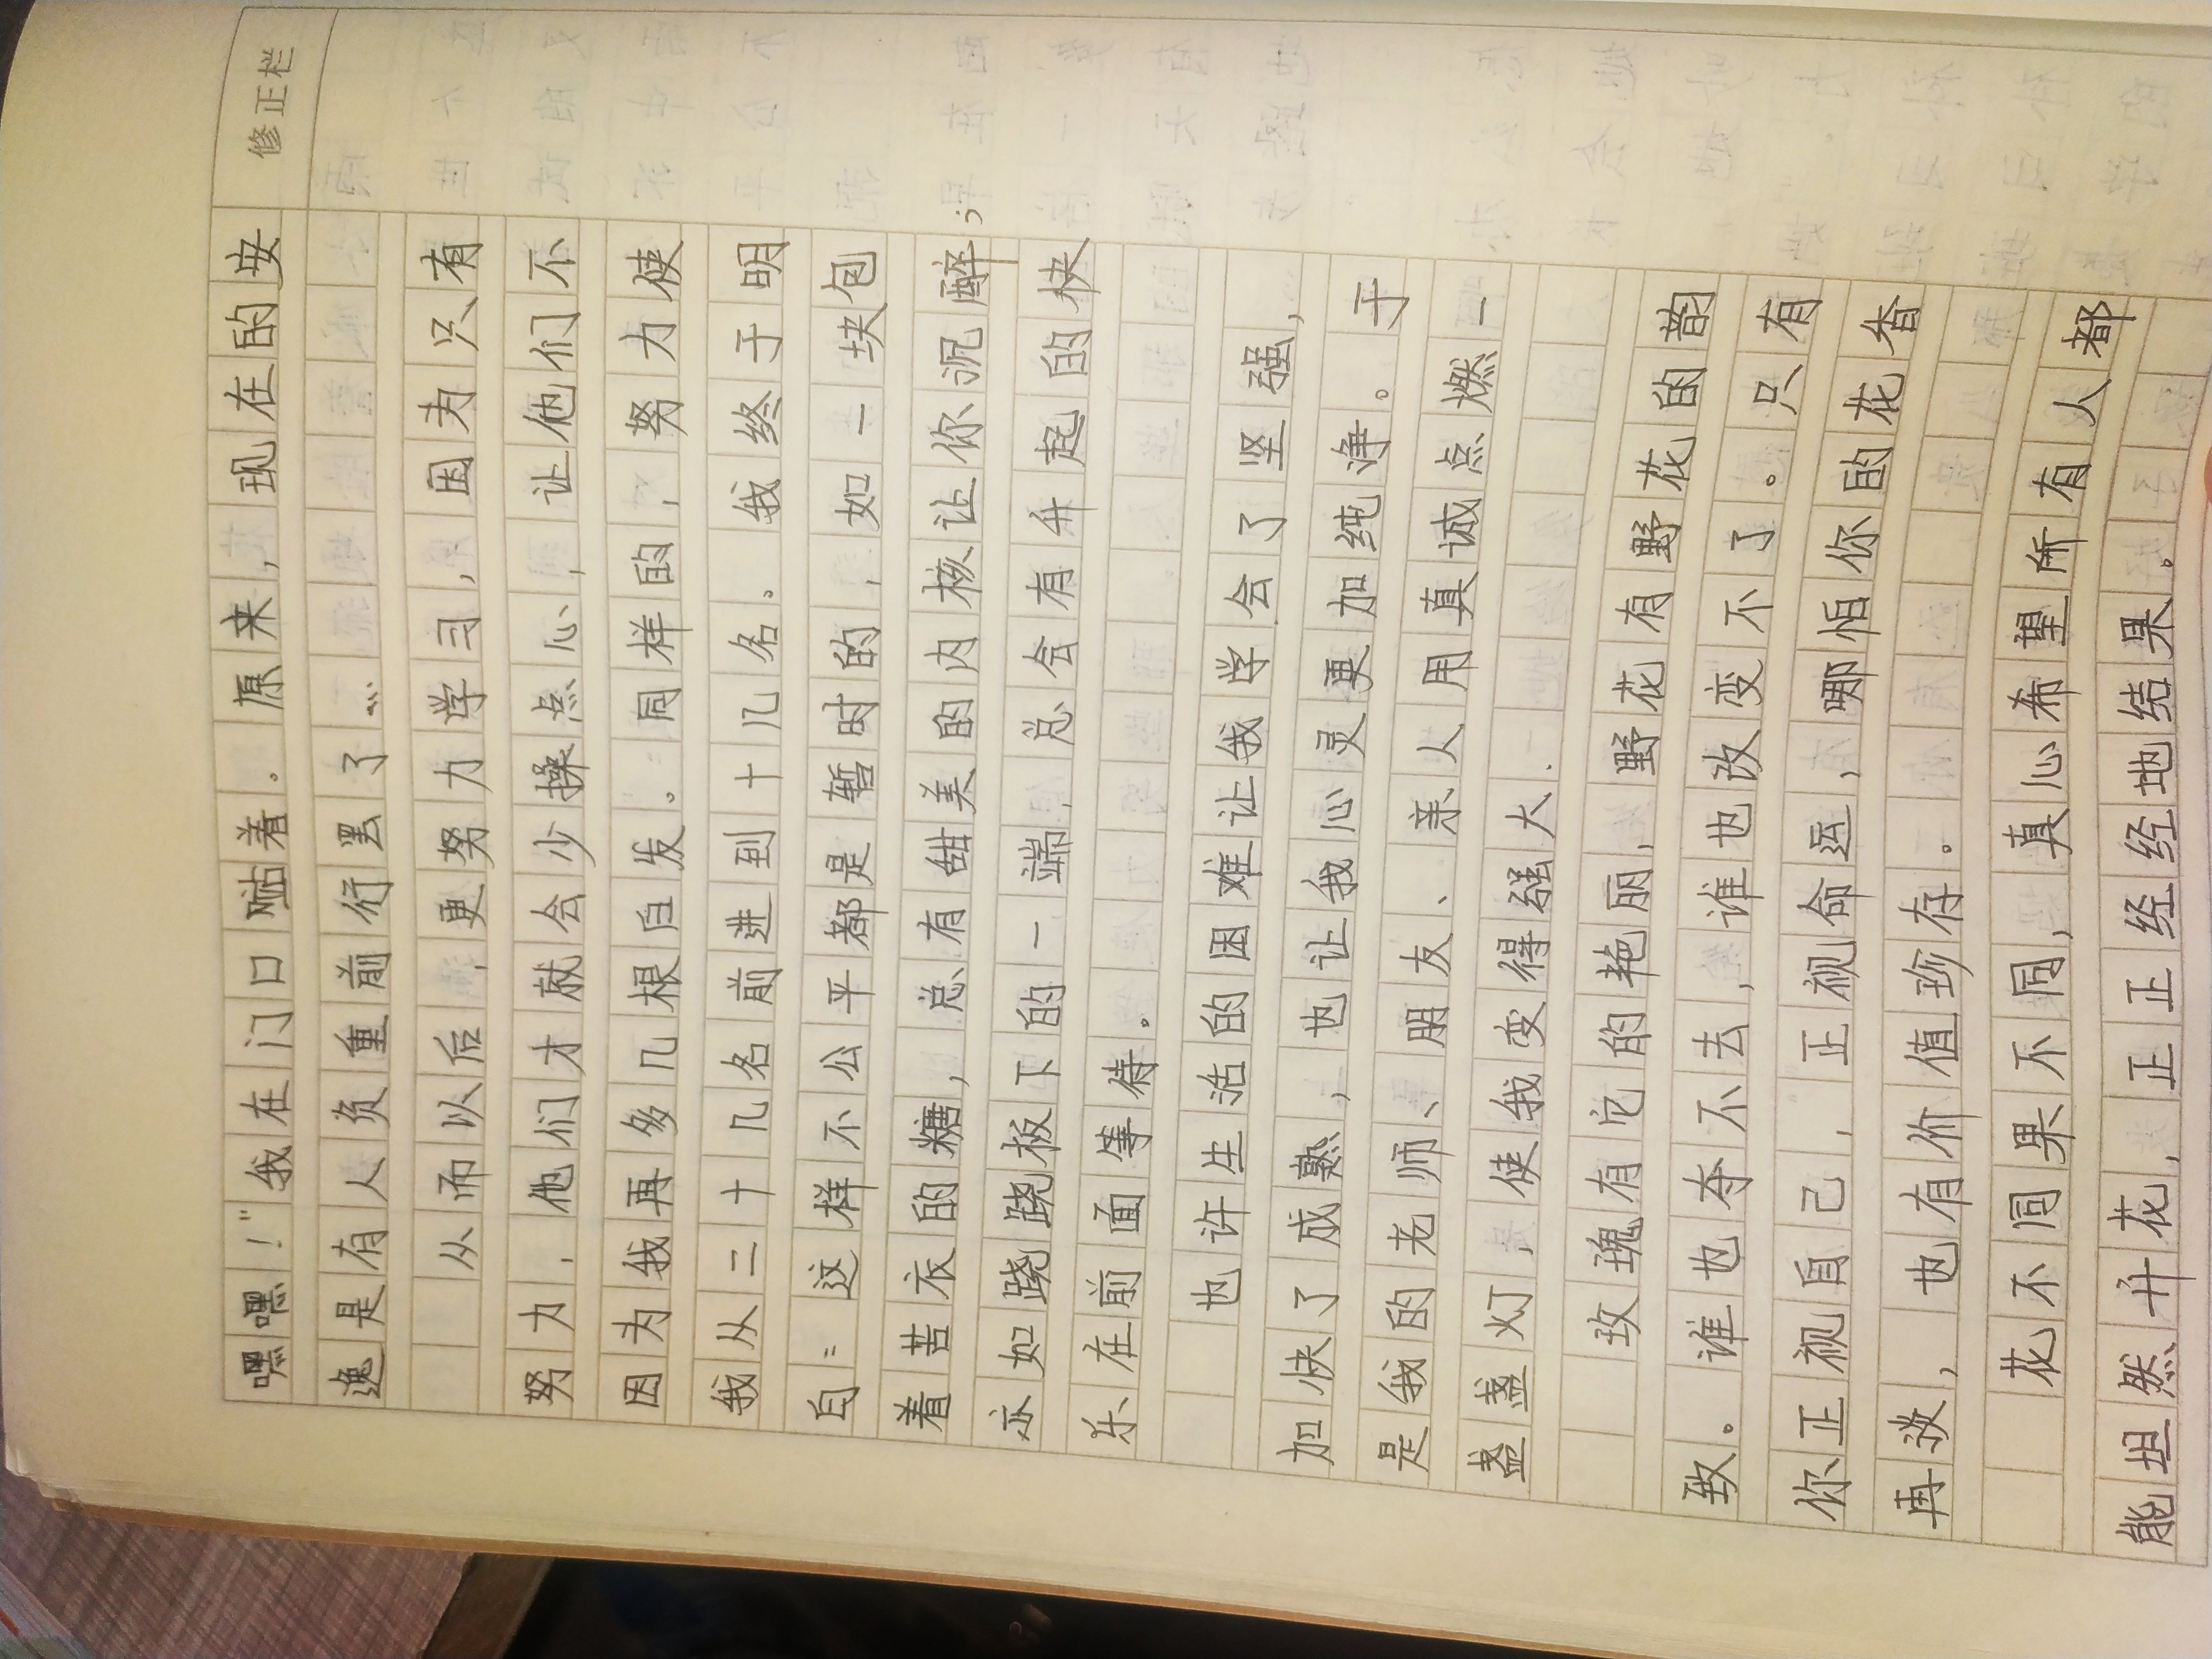 修正栏
嘿嘿！”我在门口踮着。原来，现在的安
逸是有人负重前行罢了…
从而以后，更努力学习，因为只有
努力，他们才就会少操点心，让他们不
因为我再多几根白发。同样的，努力使
我从二十几名前进到十几名。我终于明
白：这样不公平都是暂时的，如一块包
着苦衣的糖，总有甜美的内核让你沉醉；
亦如跷跷板下的一端，总会有升起的快
乐在前面等待。
也许生活的困难让我学会了坚强，
加快了成熟，也让我心灵更加纯净。于
是我的老师、朋友、亲人用真诚点燃一
盏盏灯，使我变得强大.
玫瑰有它的艳丽，野花有野花的韵
致。谁也夺不去，谁也改变不了。只有
你正视自己，正视命运，哪怕你的花香
再淡，也有价值珍存。
花不同果不同，真心希望所有人都
能坦然开花，正正经经地结果。